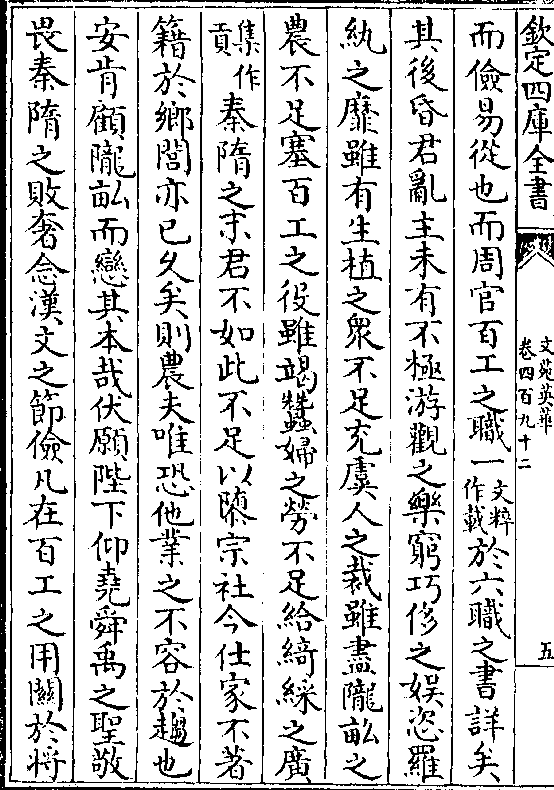 欽定四庫全書
文苑英華
卷四百九十二
五
而儉易從也而周官百工之職一文粹作載於六職之書詳矣
其後昏君亂主未有不極游觀之樂窮巧侈之娱恣羅
紈之靡雖有生植之衆不足充虞人之裁雖盡隴畝之
農不足塞百工之役雖竭蠶婦之勞不足給綺綵之廣
集作貢秦隋之末君不如此不足以隳宗社今仕家不著
籍於鄉閭亦已久矣則農夫唯恐他業之不容於趨也
安肯顧隴畝而戀其本哉伏願陛下仰堯舜禹之聖敬
畏秦隋之敗奢念漢文之節儉凡在百工之用關於將